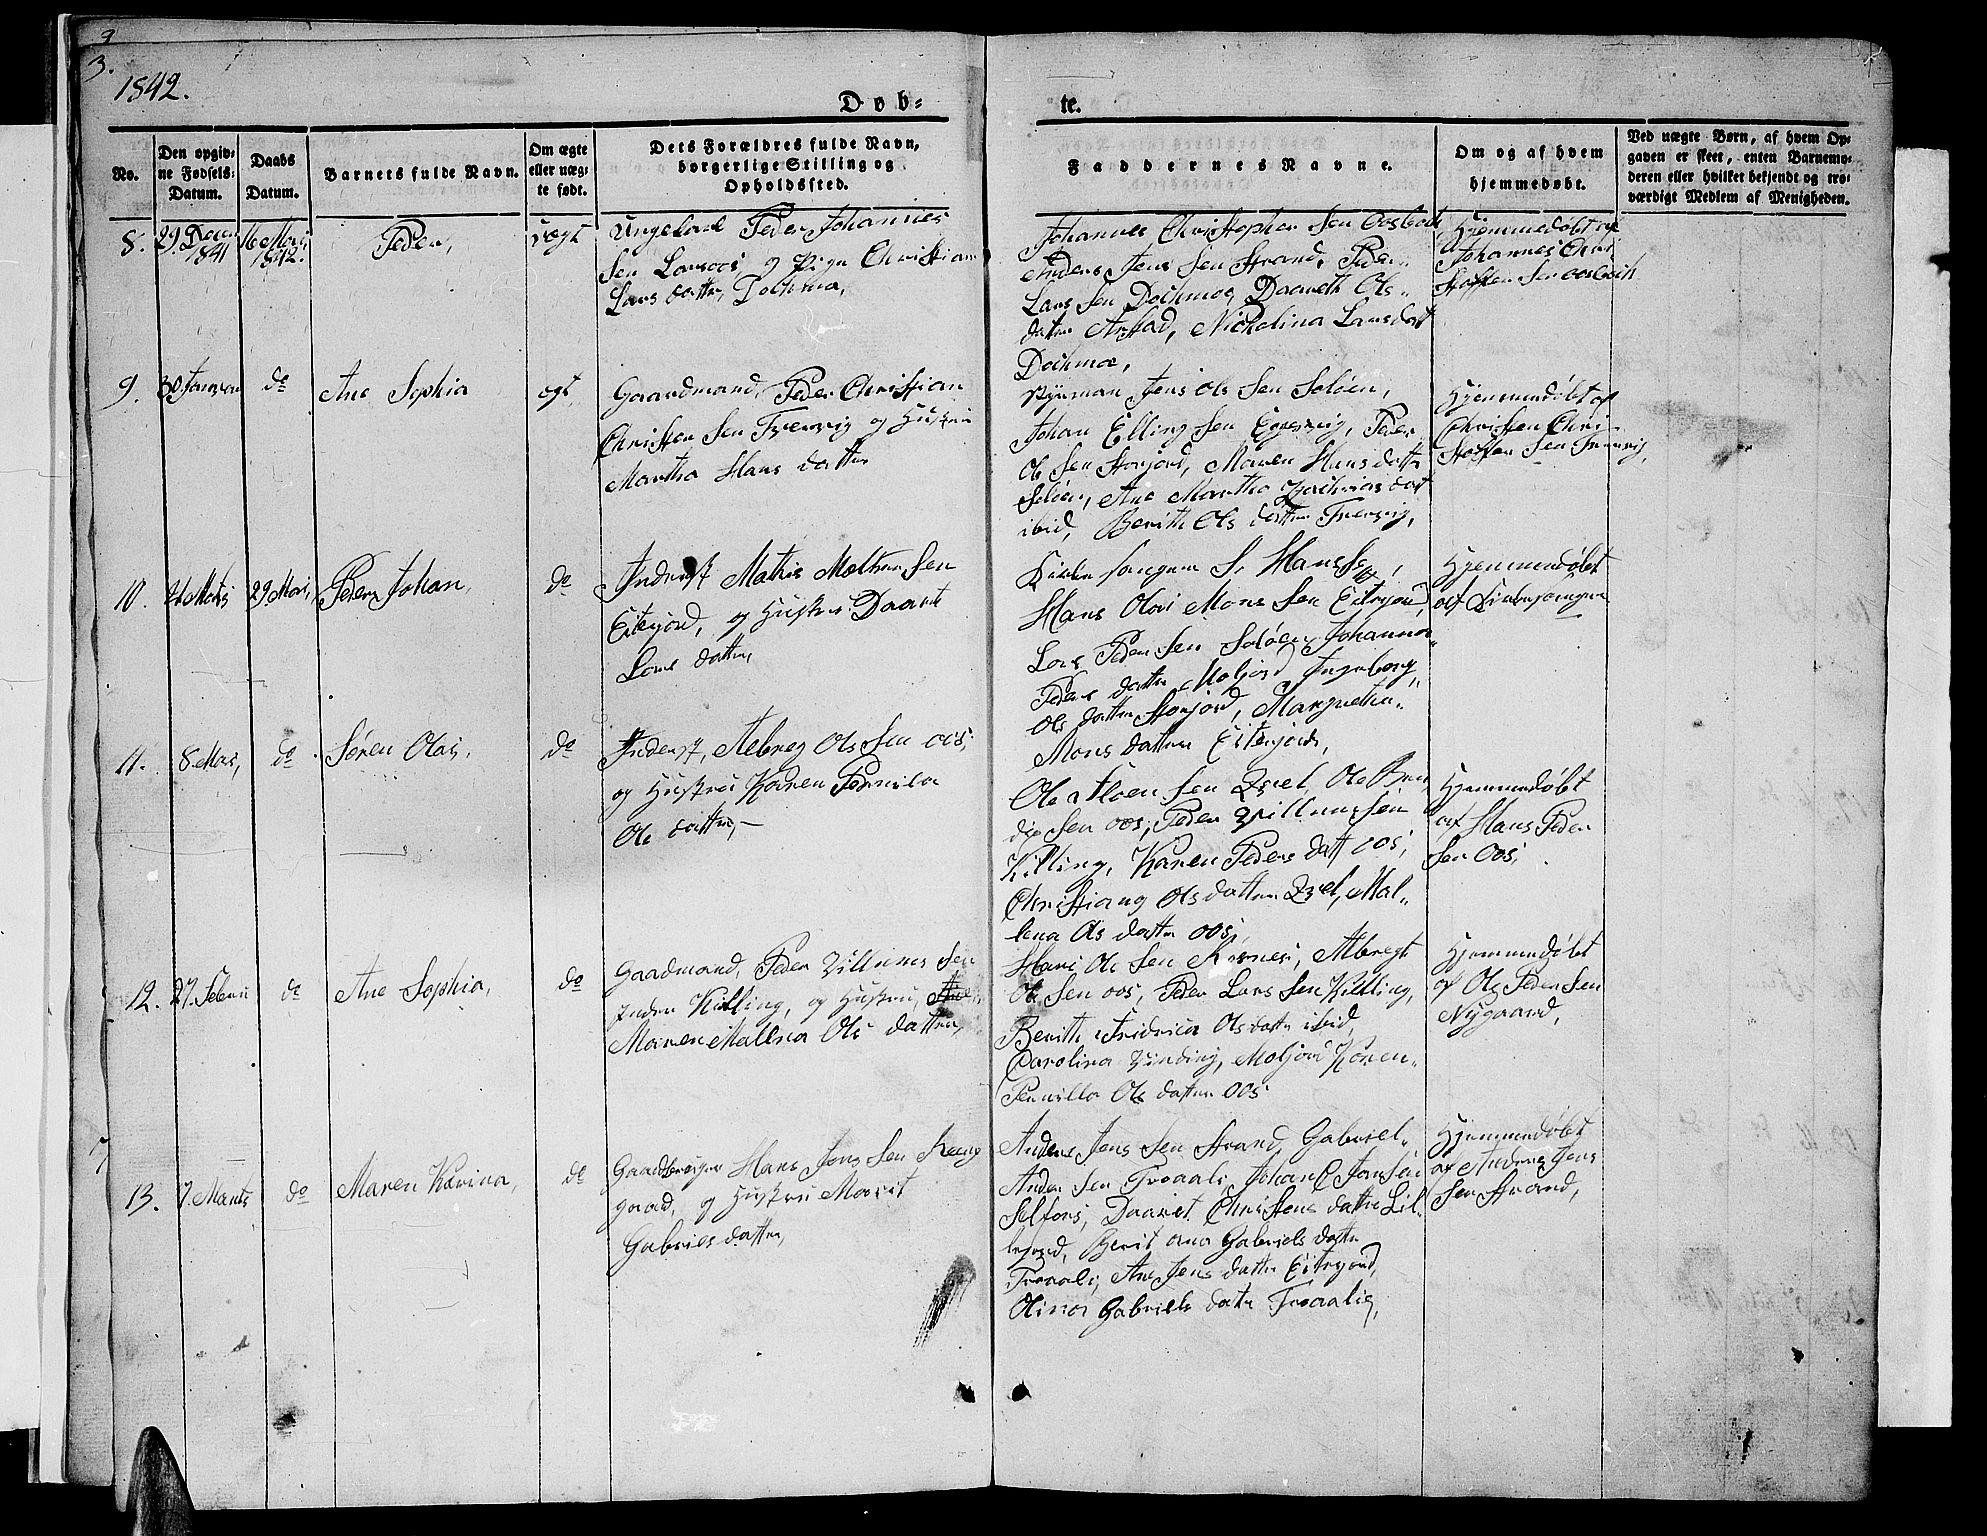 3.
1842.
Døb-
te.
No.
Den opgiv-
ne Fødsels-
Datum.
Daabs
Datum.
Barnets fulde Navn.
Om ægte
eller uæg-
te født.
Dets Forældres fulde Navn,
borgerlige Stilling og
Opholdssted.
Faddernes Navne.
Om og af hvem
hjemmedøbt.
Ved uægte Børn, af hvem Op-
gaven er skeet, enten Barnemo-
deren eller hvilket bekjendt og tro-
værdigt Medlem af Menigheden.
8.
29. Decem
1841
16 Mai
1842.
Peder,
uægt
Ungekarl Peder Johannes
Sen og Pige Christian
Lars datter,
Johannes Christopher Sen
Anders Jens Sen Strand, Peder
Lars Sen Daareth Ols
datter Nicholina Larsdatt
Hjemmedøbt af
Johannes Chri
stoffer Sen
9.
30 Januar
do
Ane Sophia
ægt
Gaardmand, Peder Christian
Christen Sen Tverrvig og Hustru
Martha Hans datter
Jens Ols Sen Soløen,
Johan Elling Sen Evjervig, Peder
Ol Sen Storjord, Maren Hans datter
Soløen, Ane Martha Zachrias datt
ibid, Berith Ols datter Tverrvig,
Hjemmedøbt af
Christen Chri-
stoffer Sen Tverrvig,
10.
29 Mai,
Peder Johan,
do
Inderst Mathis Molthe Sen
Eiterjord, og Hustru Daaret
Lars datter,
Kirke sanger S. Hanssen,
Hans Olai Mons Sen Eiterjord,
Lars Peder Sen Soløen, Johanna
Peders datter Moljord Ingeborg
Ols datter Storjord, Margretha
Mons datter Eiterjord,
Hjemmedøbt
af Kirkesanger
11.
8. Mai,
do
Søren Olai,
do
Inderst, Aebreg Ols Sen oos,
og Hustru Karen Pernila
Ols datter,
Ole Sen Qvel, Ole
Sen oos, Peder Villumsen
Killing, Karen Peders datt oos,
Christiang Olsdatter Qvel, Mal-
lena Ols datter oos,
Hjemmedøbt
af Hans Peder
Sen Oos,
12.
27. Febru
do
Ane Sophia,
do
Gaadmand, Peder Villums Sen
Inder Killing, og Hustru,
Maren Mallna Ols datter,
Hans Ole Sen Albregt
Ole Sen oos, Peder Lars Sen Killing,
Berith Fridrica Olsdatter ibid,
Carolina Vinding, Moljord Karen
Pernilla Ols datter oos
Hjemmedøbt
af Ole Peder Sen
Nygaard,
13.
7. Marts
do
Maren Karina,
do
Gaadbruger Hans Jens Sen
gaard, og Hustru Marit
Gabriels datter,
Anders Jens Sen Strand, Gabriel
Anders Sen Traaeli, Johan C Jonsen
Selfors, Daaret Christens datter Lil-
lejord, Berit ana Gabriels datter
Traaeli, Ane Jens datter Eiterjord,
Olina Gabriels datter Traaelig,
Hjemmedøbt
af Anders Jens
Sen Strand,